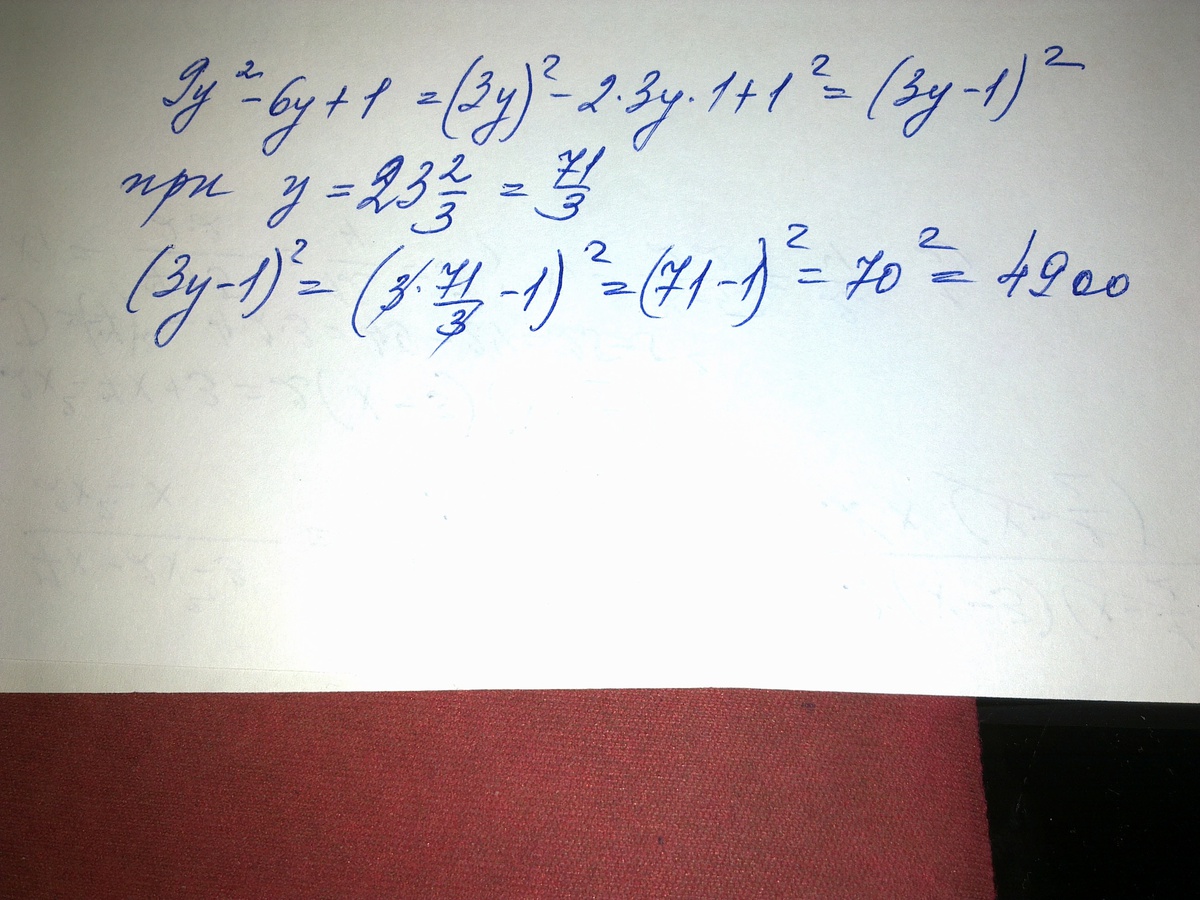 9y² - 6y + 1 = (3y)² - 2·3y·1 + 1² = (3y - 1)²
при y = 23 2/3 = 71/3
(3y - 1)² = (3 · 71/3 - 1)² = (71 - 1)² = 70² = 4900